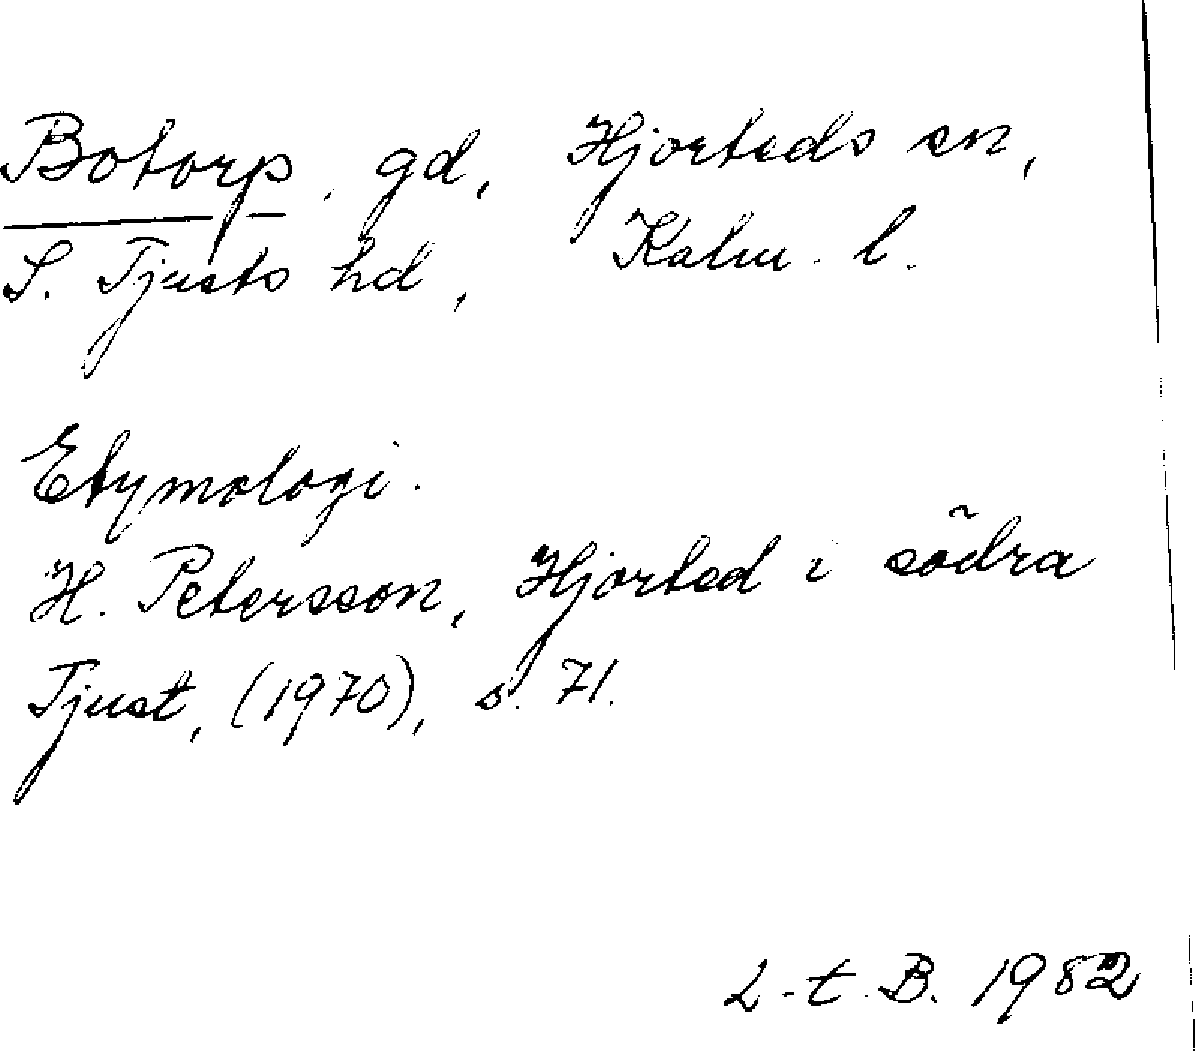 Botorp, gd, Hjorteds sn,
S. Tjusts hd, Kalm. l.
Etymologi.
H. Petersson, Hjorted i södra
Tjust, (1970), s. 71.
L-t. B. 1982